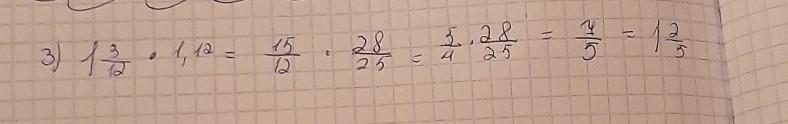 3) 1 3/12 · 1,12 = 15/12 · 28/25 = 5/4 · 28/25 = 7/5 = 1 2/5